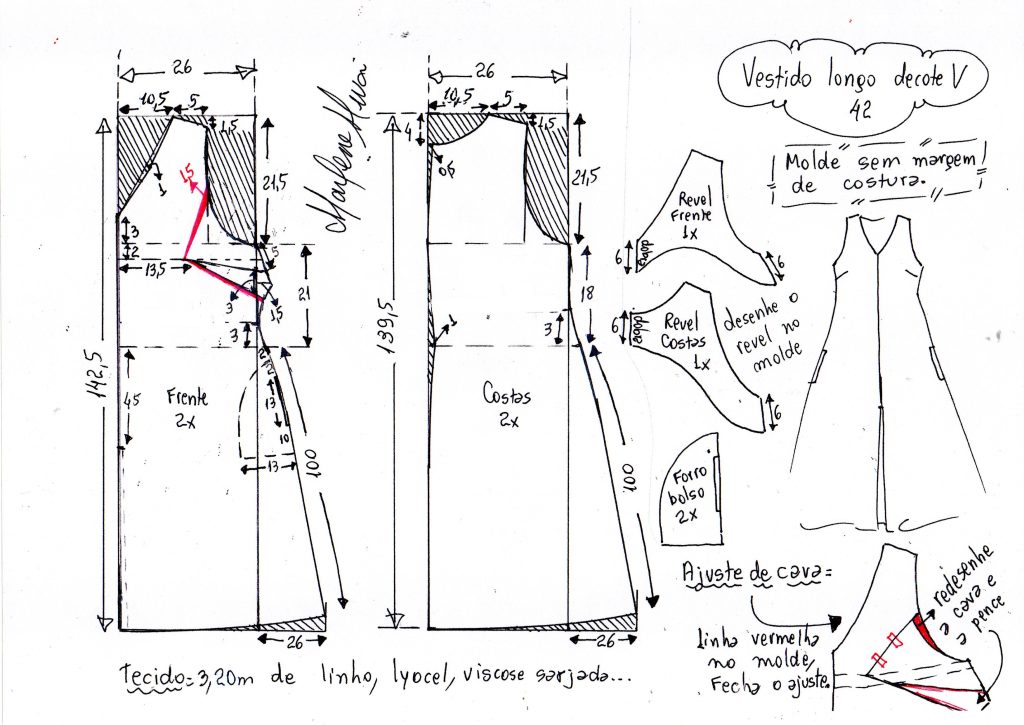 26
10,5
5
1,5
1
1,5
21,5
3
2
13,5
5
3
1,5
21
3
2
142,5
45
Frente
2x
13
10
13
100
26
Marlene Mukai
26
10,5
5
4
1,5
0,5
21,5
139,5
18
3
1
Costas
2x
100
26
Vestido longo decote V
42
Molde sem margem
de costura.
Revel
Frente
1x
dobra
6
6
Revel
Costas
1x
dobra
6
6
desenhe o
revel no
molde
Forro
bolso
2x
Ajuste de cava=
Linha vermelha
no molde,
Fecha o ajuste.
redesenhe
a cava e
a pence
Tecido=3,20m de linho, lyocel, viscose sarjada...